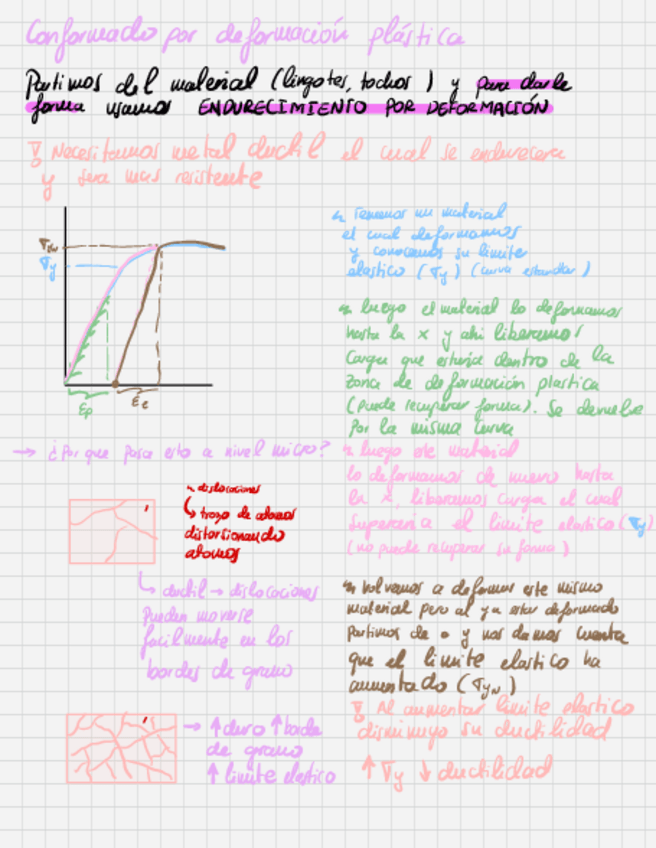 Conformado por deformación plástica
Partimos del material (lingotes, tochos) y para darle
forma usamos ENDURECIMIENTO POR DEFORMACIÓN
! Necesitamos metal ductil el cual se endurecera
y sera mas resistente
Tenemos un material
el cual deformamos
y conocemos su limite
elastico (σy) (curva estandar)
σyw
σy
εp
εe
luego el material lo deformamos
hasta la x y ahi liberamos
Carga que estaria dentro de la
zona de deformación plastica
(puede recuperar forma). Se devuelve
por la misma curva
→ ¿Por que pasa esto a nivel micro?
luego este material
lo deformamos de nuevo hasta
la x, liberamos carga el cual
superaria el limite elastico (σy)
(no puede recuperar su forma)
dislocaciones
↳ trozo de atomos
distorsionando
atomos
↳ ductil → dislocaciones
Pueden moverse
facilmente en los
bordes de grano
Volvemos a deformar este mismo
material pero al ya estar deformado
partimos de • y nos damos cuenta
que el limite elastico ha
aumentado (σyw)
! Al aumentar limite elastico
disminuye su ductilidad
↑ σy ↓ ductilidad
→ ↑ duro ↑ borde
de grano
↑ limite elastico